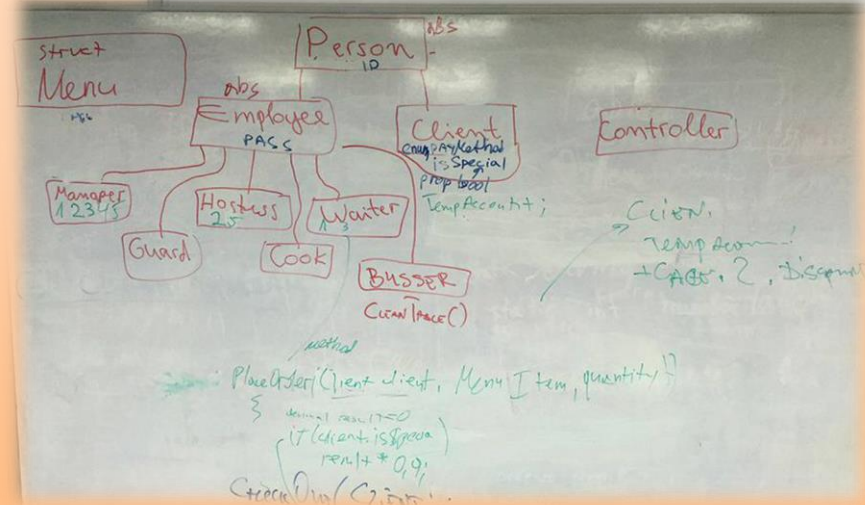 Struct
Menu
Person
ABS
ID
abs
Employee
PASS
Client
enum payMethod
isSpecial
prop bool
TempAccount;
Controller
Manager
1 2 3 4 5
Guard
Hostess
25
Cook
Waiter
BUSSER
CleanTable()
Client.
method
PlaceOrder(Client client, Menu Item, quantity
{
decimal result=0
if (client.isSpecia)
result * 0,9;